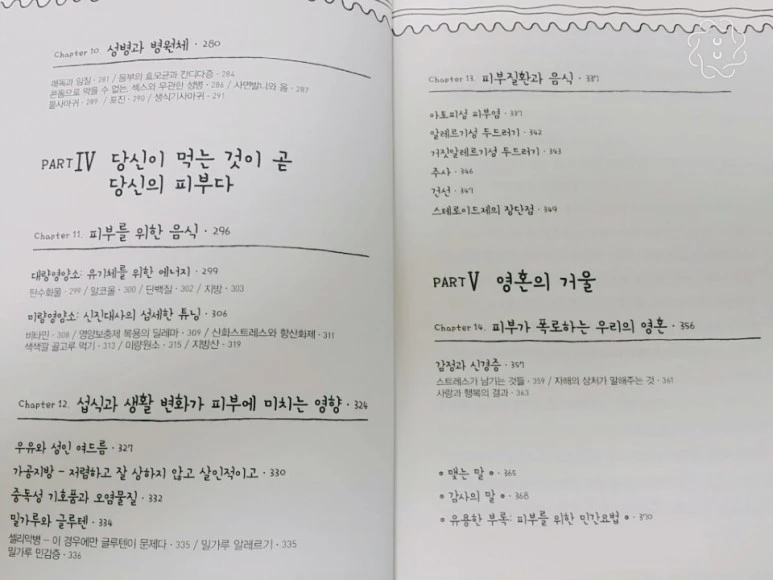 Chapter 10. 성병과 병원체 · 280
매독과 임질 · 281 / 음부의 효모균과 칸디다증 · 284
콘돔으로 막을 수 없는, 섹스와 무관한 성병 · 286 / 사면발니와 옴 · 287
물사마귀 · 289 / 포진 · 290 / 생식기사마귀 · 291
PART IV 당신이 먹는 것이 곧
당신의 피부다
Chapter 11. 피부를 위한 음식 · 296
대량영양소: 유기체를 위한 에너지 · 299
탄수화물 · 299 / 알코올 · 300 / 단백질 · 302 / 지방 · 303
미량영양소: 신진대사의 섬세한 튜닝 · 306
비타민 · 308 / 영양보충제 복용의 딜레마 · 309 / 산화스트레스와 항산화제 · 311
색색깔 골고루 먹기 · 313 / 미량원소 · 315 / 지방산 · 319
Chapter 12. 섭식과 생활 변화가 피부에 미치는 영향 · 324
우유와 성인 여드름 · 327
가공지방 – 저렴하고 잘 상하지 않고 살인적이고 · 330
중독성 기호품과 오염물질 · 332
밀가루와 글루텐 · 334
셀리악병 – 이 경우에만 글루텐이 문제다 · 335 / 밀가루 알레르기 · 335
밀가루 민감증 · 336
Chapter 13. 피부질환과 음식 · 337
아토피성 피부염 · 337
알레르기성 두드러기 · 342
거짓알레르기성 두드러기 · 343
주사 · 346
건선 · 347
스테로이드제의 장단점 · 349
PART V 영혼의 거울
Chapter 14. 피부가 폭로하는 우리의 영혼 · 356
감정과 신경증 · 357
스트레스가 남기는 것들 · 359 / 자해의 상처가 말해주는 것 · 361
사랑과 행복의 결과 · 363
• 맺는 말 • · 365
• 감사의 말 • · 368
• 유용한 부록: 피부를 위한 민간요법 • · 370